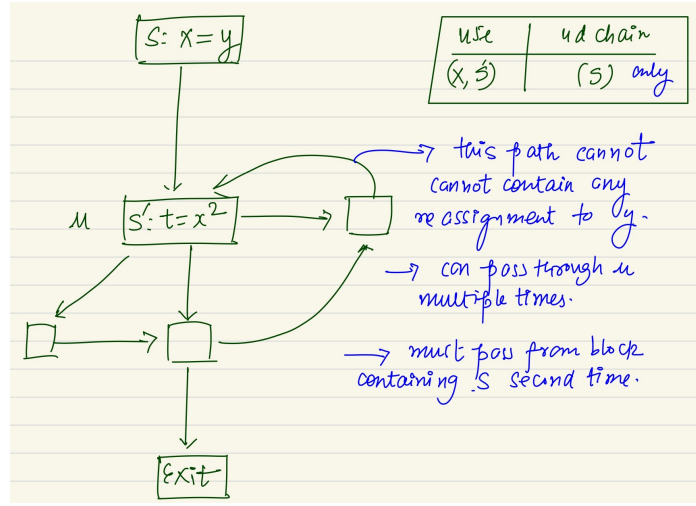 S: x = y
use ud chain
(x, S') (S) only
→ this path cannot
cannot contain any
re assignment to y.
u S': t = x²
→ can pass through u
multiple times.
→ must pass from block
containing S second time.
Exit